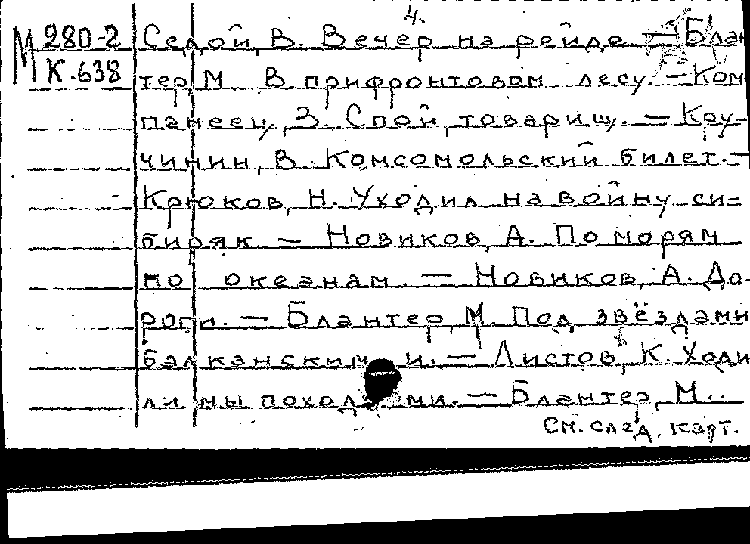 4.
М 280-2 Седой, В. Вечер на рейде. — Блан
К.638 тер, М. В прифронтовом лесу. — Ком
панеец, З. Спой, товарищ. — Кру-
чинин, В. Комсомольский билет. —
Крюков, Н. Уходил на войну си-
биряк — Новиков, А. По морям
по океанам. — Новиков, А. До-
роги. — Блантер, М. Под звёздами
балканскими. — Листов, К. Ходи
ли мы походами. — Блантер, М..
См. след. карт.